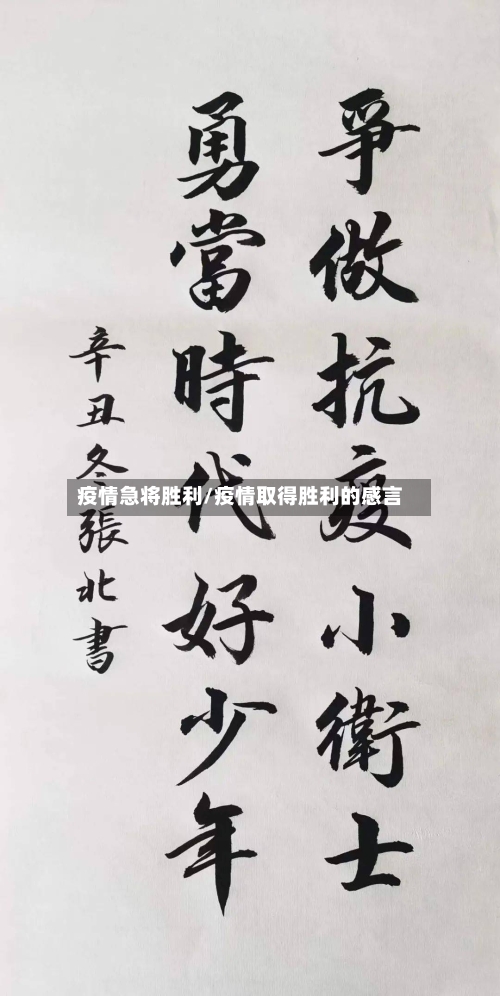 爭做抗疫小衛士
勇當時代好少年
辛丑冬張北書
疫情急将胜利/疫情取得胜利的感言